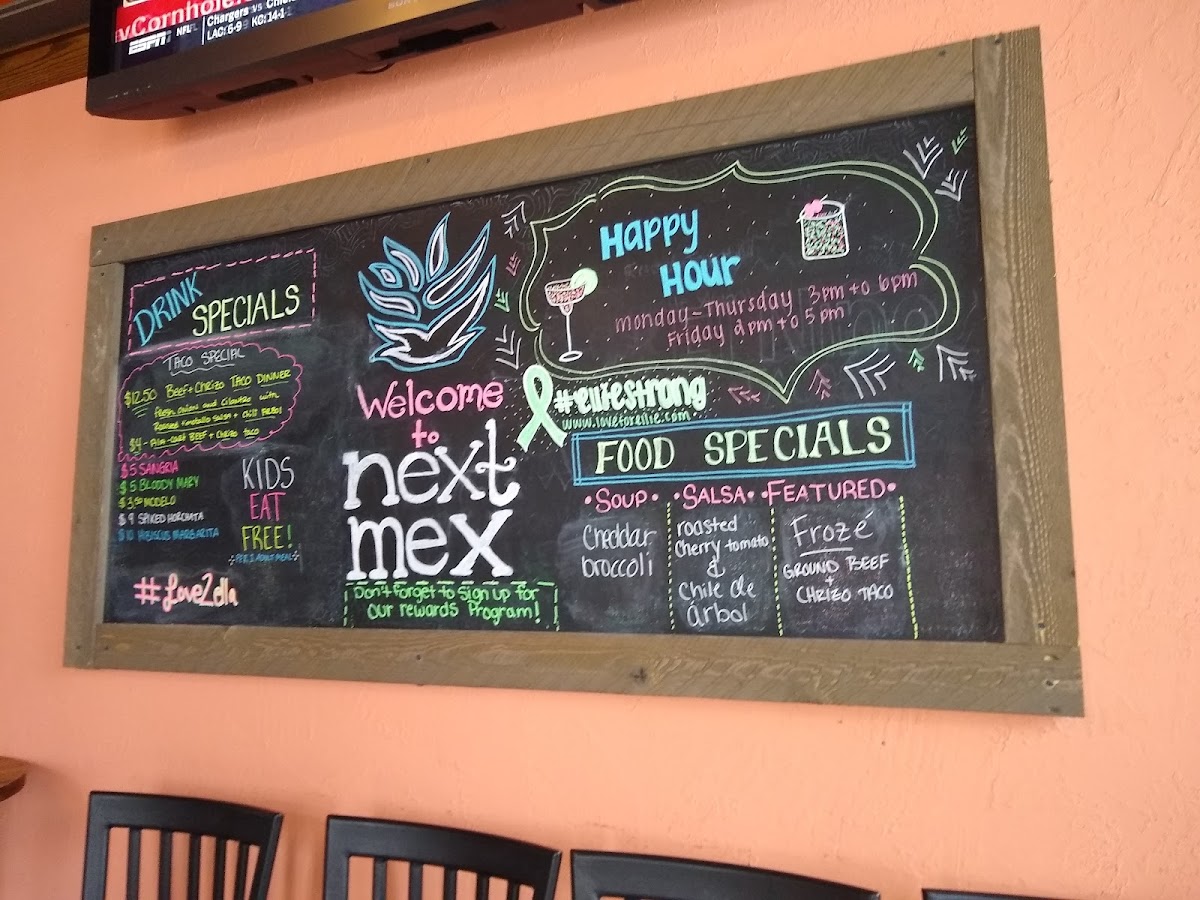 v.Cornhole
ESPN NFL Chargers vs Chie
LAC:6-9 KC:14-1
DRINK
SPECIALS
TACO SPECIAL
$12.50 Beef + Chrizo TACO DINNER
fresh onion and cilantro with
Roasted salsa + Chili
$4 - BEEF + Chrizo taco
$5 SANGRIA
$5 BLOODY MARY
$3.50 MODELO
$9 SPIKED HORCHATA
$10 HIBISCUS MARGARITA
KIDS
EAT
FREE!
PER 1 ADULT MEAL
#LoveZella
Welcome
to
next
mex
Don't forget to sign up for
our rewards Program!
Happy
Hour
Monday-Thursday 3pm to 6pm
Friday 2pm to 5pm
#elliestrong
www.loveforellie.com
FOOD SPECIALS
•SOUP• •SALSA• •FEATURED•
Cheddar
broccoli
roasted
Cherry tomato
&
Chile de
árbol
Frozé
GROUND BEEF
+
CHRIZO TACO